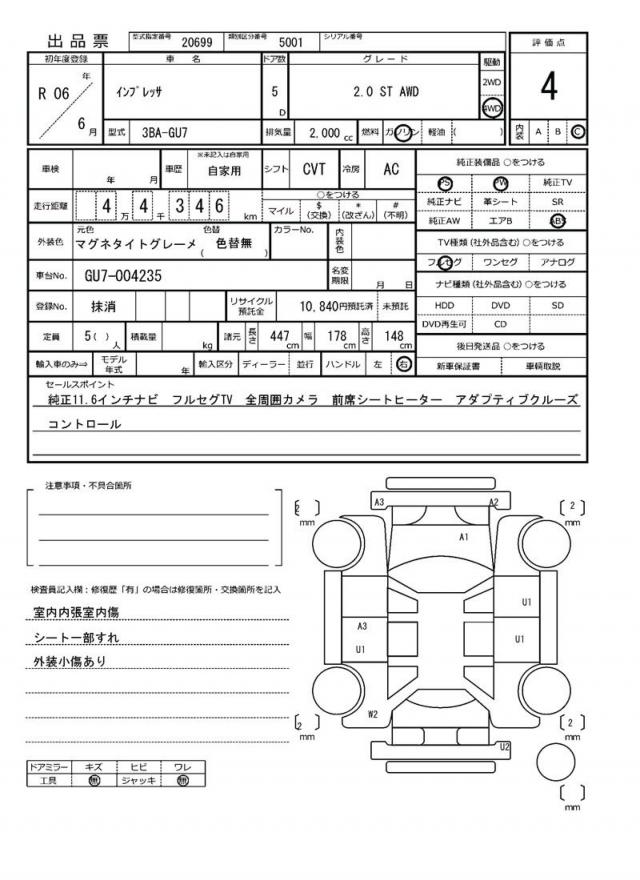 出品票 型式指定番号 20699 類別区分番号 5001 シリアル番号
評価点
初年度登録 車名 ドア数 グレード 駆動
R 06 年 インプレッサ 5 D 2.0 ST AWD 2WD 4WD 4
6月 型式 3BA-GU7 排気量 2,000 cc 燃料 ガソリン 軽油 ( ) 内装 A B C
車検 年 月 車歴 ※未記入は自家用 自家用 シフト CVT 冷房 AC 純正装備品 ○をつける
PS PW 純正TV
走行距離 4 4万 4千 3 4 6 km ○をつける マイル $(交換) *(改ざん) #(不明) 純正ナビ 革シート SR
純正AW エアB ABS
外装色 元色 マグネタイトグレーメ 色替 ( 色替無 ) カラーNo. 内装色 TV種類 (社外品含む) ○をつける
フルセグ ワンセグ アナログ
車台No. GU7-004235 名変期限 月 日 ナビ種類 (社外品含む) ○をつける
登録No. 抹消 リサイクル預託金 10,840円預託済 未預託 HDD DVD SD
DVD再生可 CD
定員 5( )人 積載量 kg 諸元 長さ 447cm 幅 178cm 高さ 148cm 後日発送品 ○をつける
輸入車のみ⇒ モデル年式 年 輸入区分 ディーラー 並行 ハンドル 左 右 新車保証書 車輌取説
セールスポイント
純正11.6インチナビ フルセグTV 全周囲カメラ 前席シートヒーター アダプティブクルーズ
コントロール
注意事項・不具合箇所
検査員記入欄：修復歴「有」の場合は修復箇所・交換箇所を記入
室内内張室内傷
シート一部すれ
外装小傷あり
ドアミラー キズ ヒビ ワレ
工具 無 ジャッキ 無
2 mm A3 A2 2 mm
A1
U1
A3
U1 U1
W2
2 mm U2 2 mm
mm